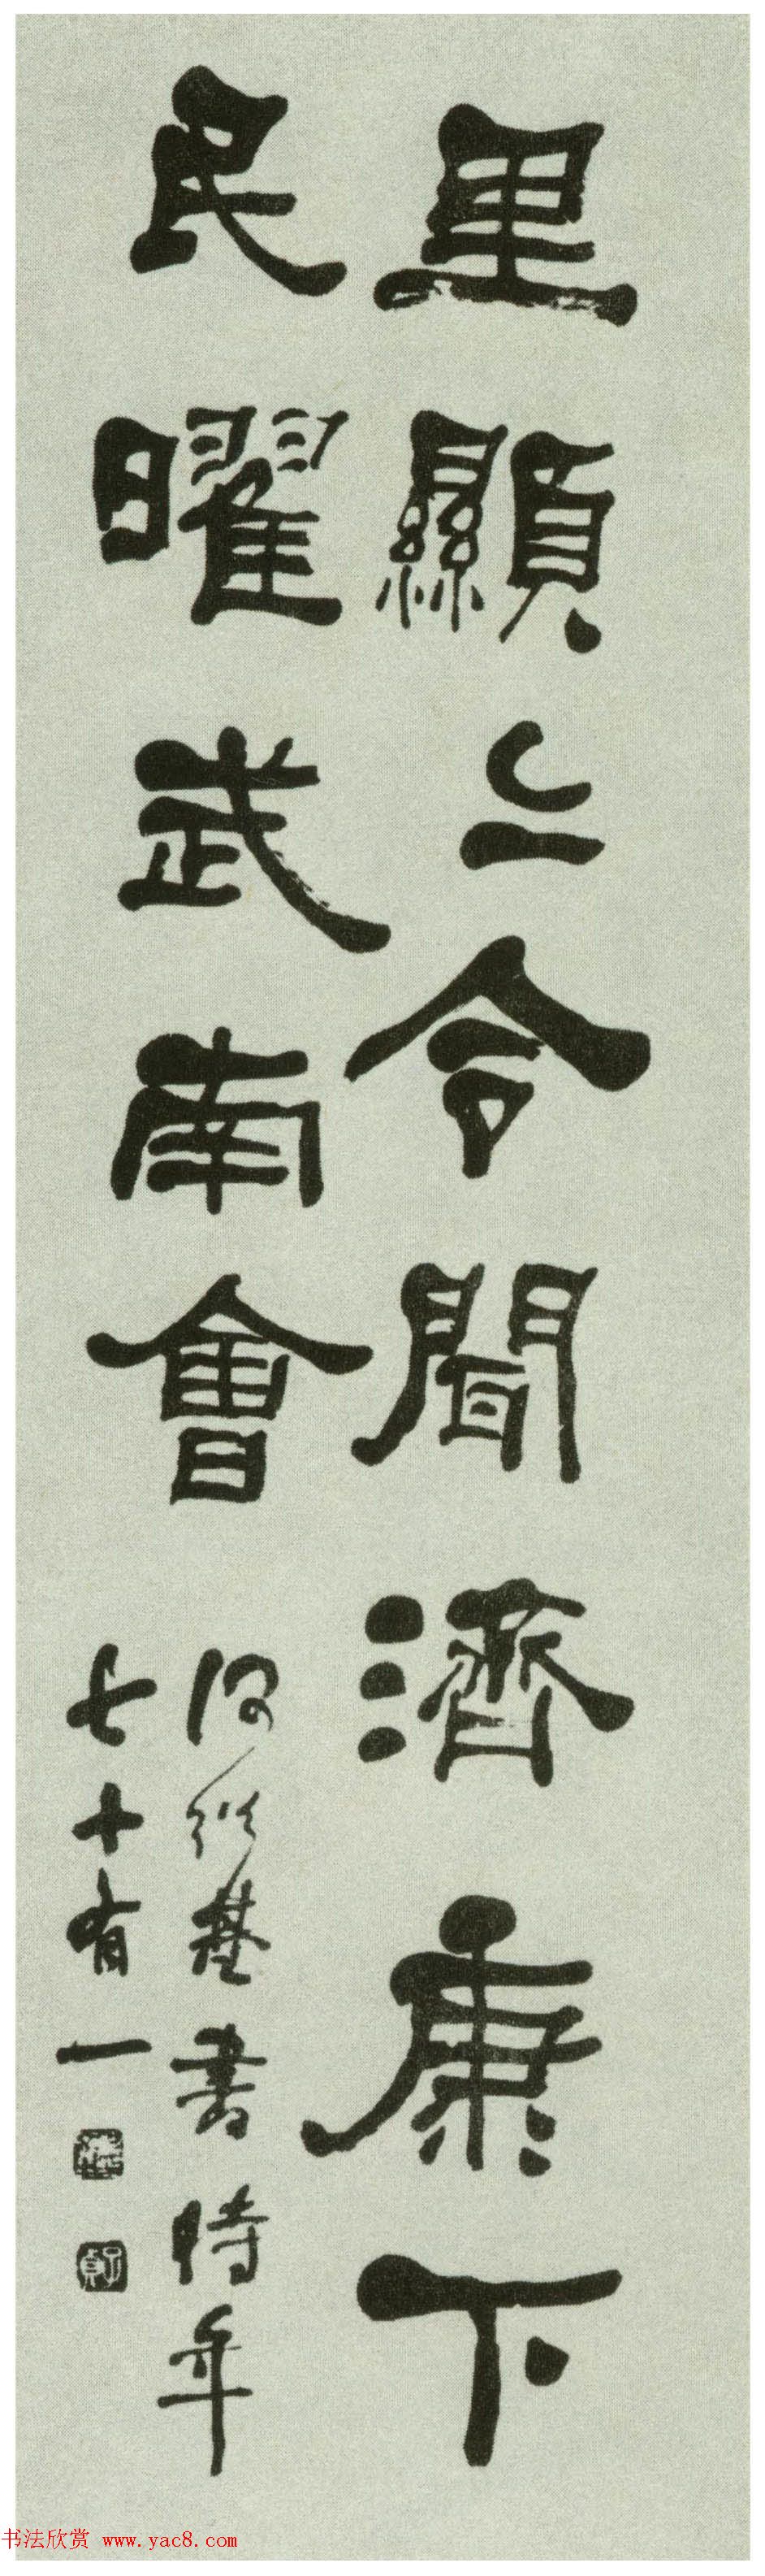 里顯二令聞濟康下
民曜武南會
何紹基書時年
七十有一
子貞
书法欣赏 www.yac8.com